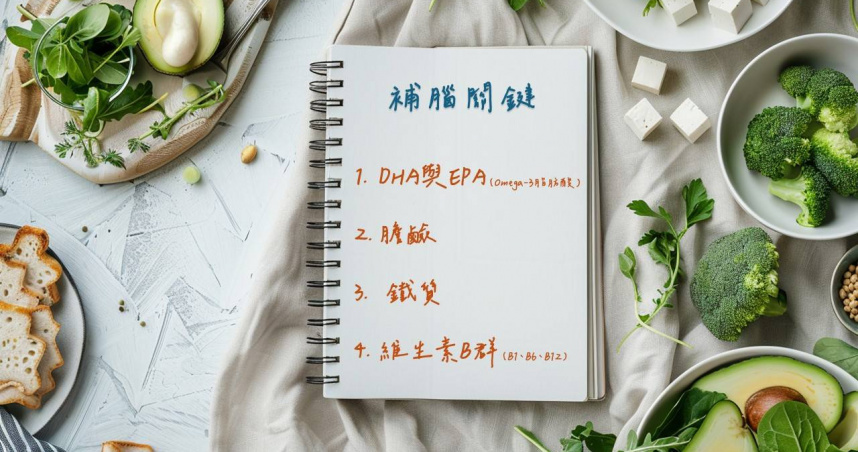 補腦關鍵
1. DHA與EPA(Omega-3脂肪酸)
2. 膽鹼
3. 鐵質
4. 維生素B群(B1、B6、B12)